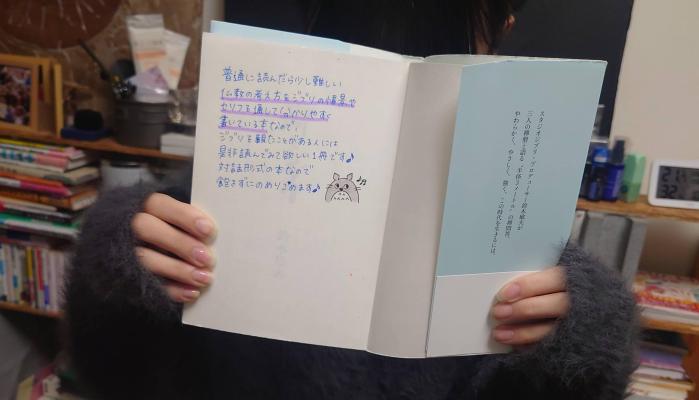 普通に読んだら少し難しい
仏教の考え方をジブリの情景や
セリフを通して(?)分かりやすく
書いている本なので、
ジブリを観たことがある人には
是非読んでみて欲しい1冊です♪
対話形式の本なので
飽きずにのめりこめます♪
スタジオジブリ・プロデューサー鈴木敏夫が
三人の禅僧と語る、半径3メートルの禅問答。
やわらかく、やさしく、強く、この時代を生きるには。